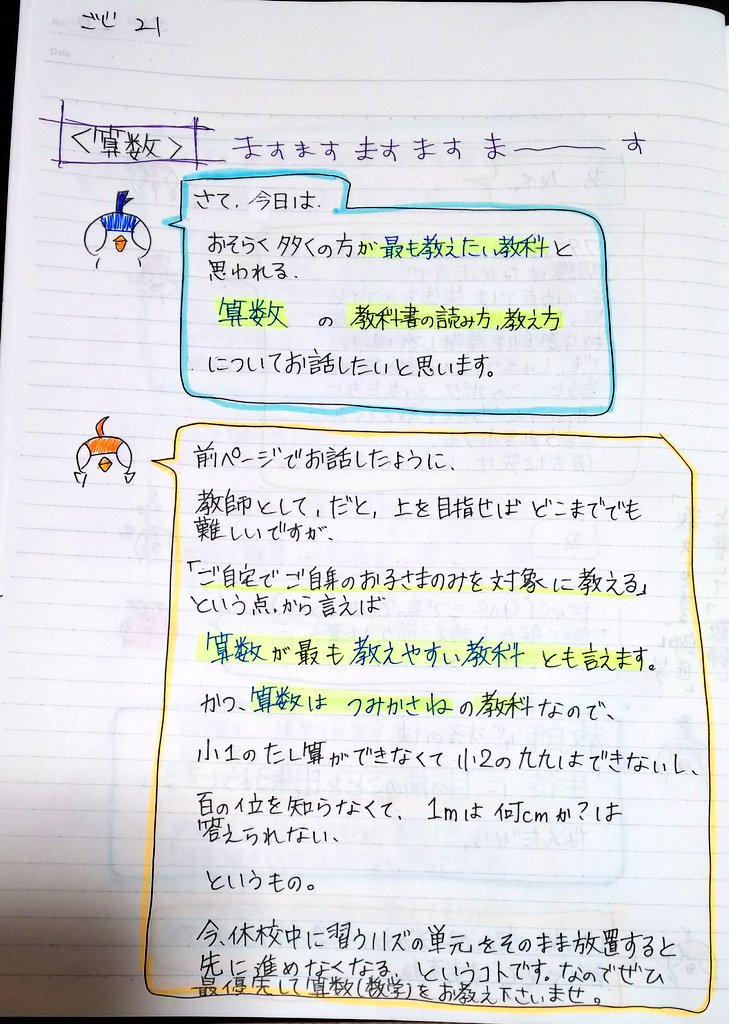 No.
Date
ごじ 21
<算数>
ますます ます ます ま―――す
さて、今日は、
おそらく多くの方が最も教えたい教科と
思われる、
算数 の 教科書の読み方,教え方
についてお話したいと思います。
前ページでお話したように、
教師として,だと,上を目指せば どこまででも
難しいですが、
「ご自宅でご自身のお子さまのみを対象に教える」
という点、から言えば
算数が最も教えやすい教科 とも言えます。
かつ、算数は つみかさねの教科なので、
小1のたし算ができなくて 小2の九九はできないし、
百の位を知らなくて、1mは何cmか?は
答えられない、
というもの。
今、休校中に習うハズの単元をそのまま放置すると
先に進めなくなる、というコトです。なのでぜひ
最優先して算数(数学)をお教え下さいませ。